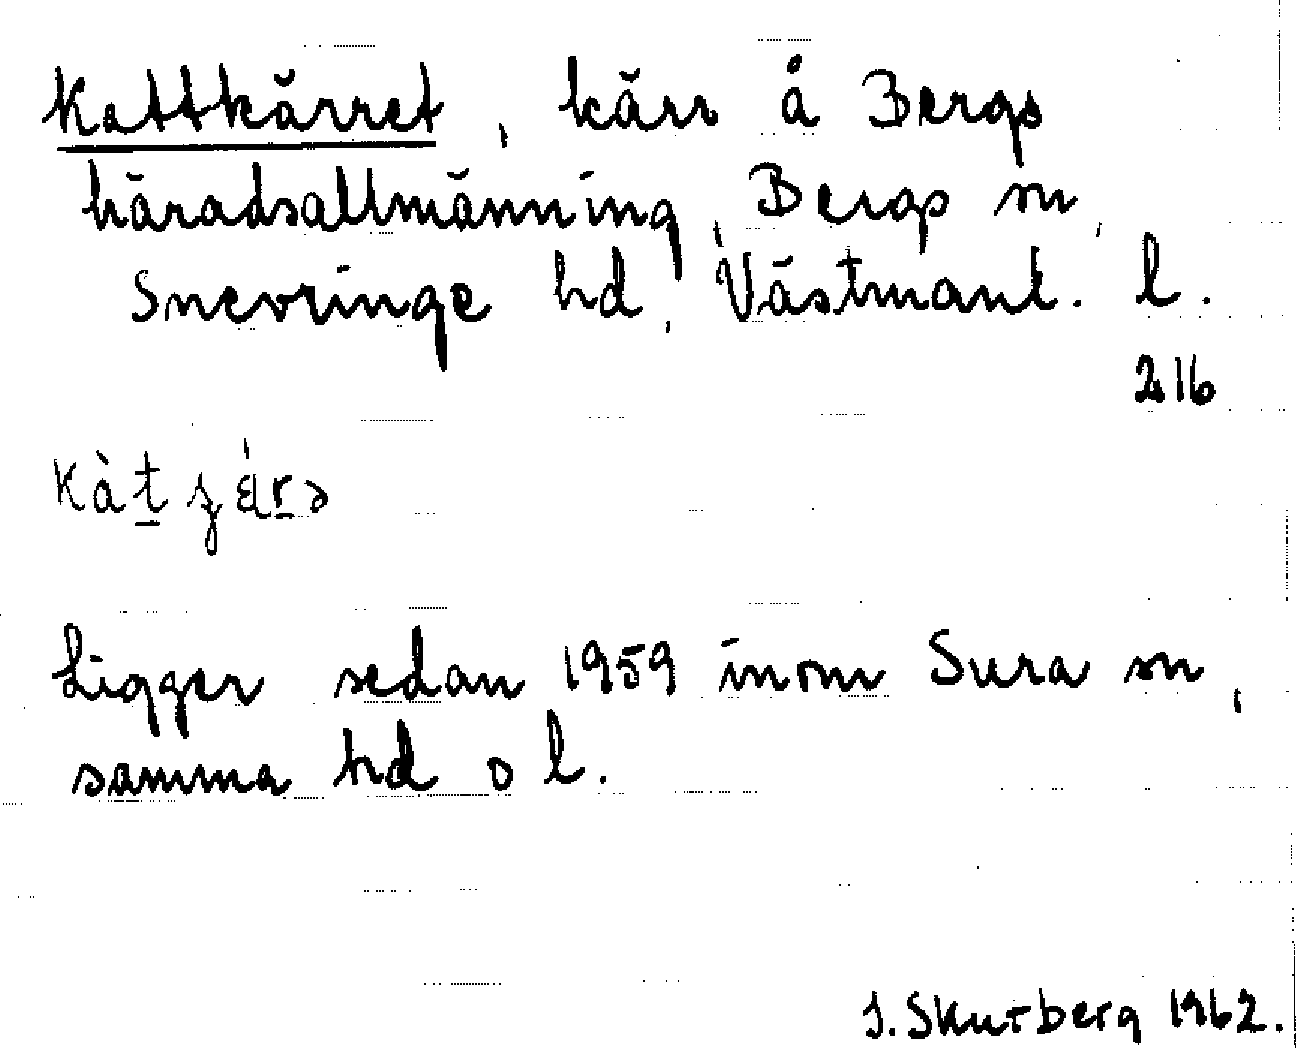 Kattkärret, kärr å Bergs
häradsallmänning, Bergs sn,
Snevringe hd, Västmanl. l.
216
Ligger sedan 1959 inom Sura sn,
samma hd o l.
J. Skutberg 1962.